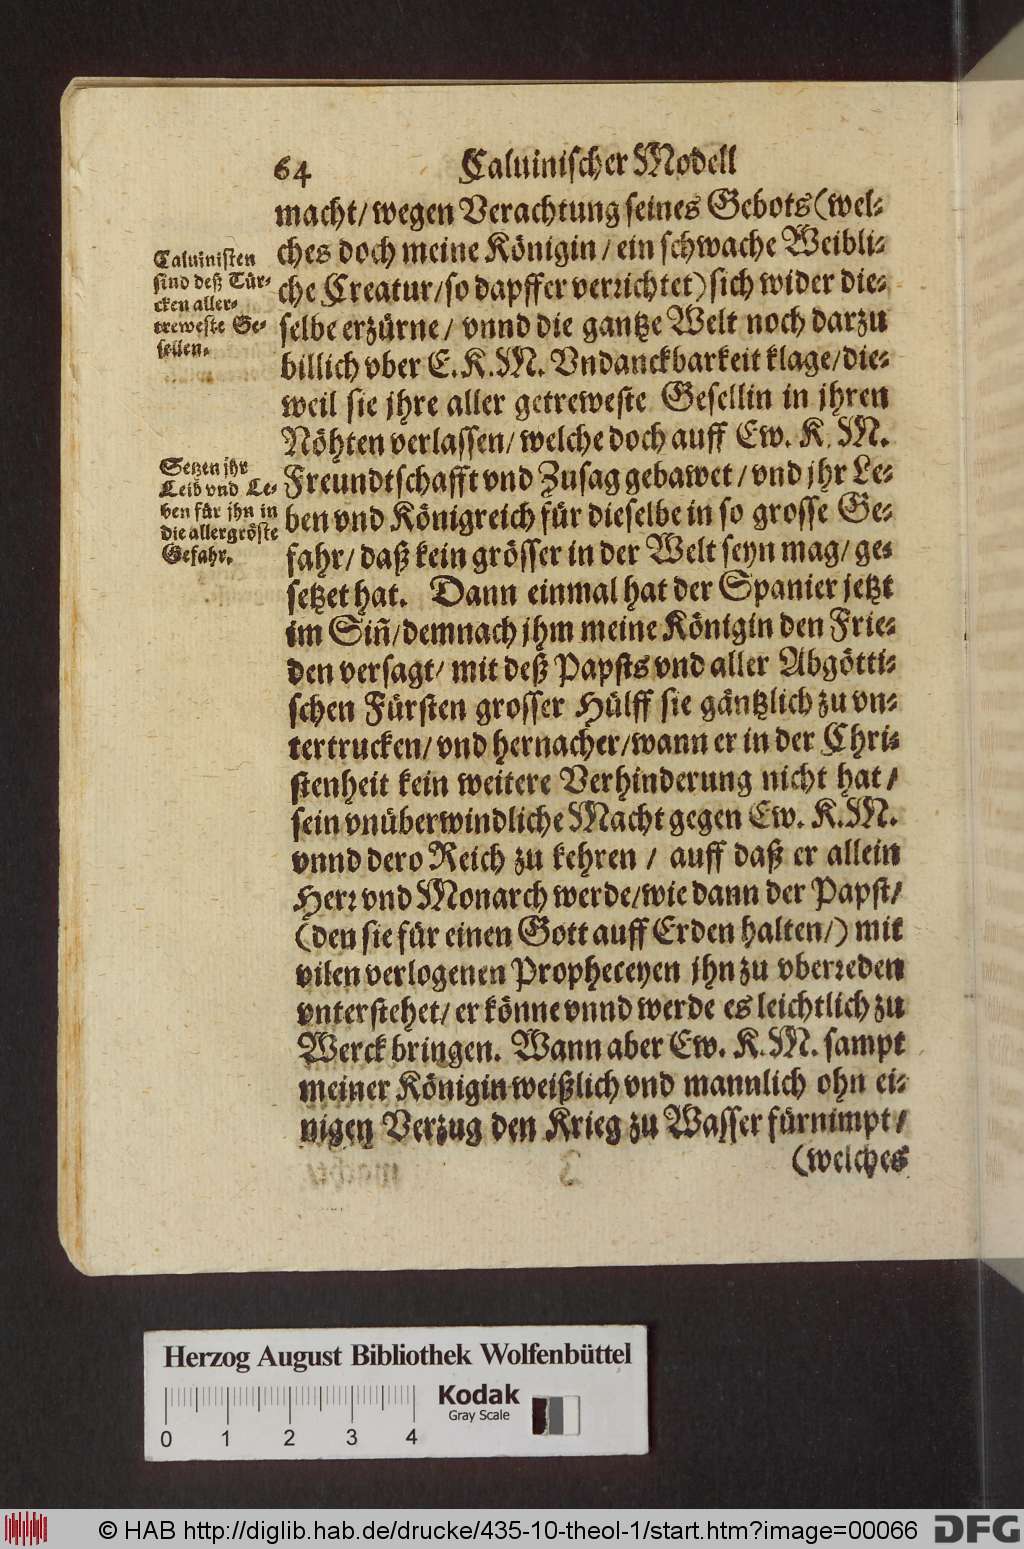 64 Caluinischer Modell
macht/ wegen Verachtung seines Gebots (wel-
ches doch meine Königin/ ein schwache Weibli-
che Creatur/ so dapffer verrichtet) sich wider die-
selbe erzürne/ vnnd die gantze Welt noch darzu
billich vber E. K. M. Vndanckbarkeit klage/ die-
weil sie jhre aller getreweste Gesellin in jhren
Nöhten verlassen/ welche doch auff Ew. K. M.
Freundtschafft vnd Zusag gebawet/ vnd jhr Le-
ben vnd Königreich für dieselbe in so grosse Ge-
fahr/ daß kein grösser in der Welt seyn mag/ ge-
setzet hat. Dann einmal hat der Spanier jetzt
im Siñ/ demnach jhm meine Königin den Frie-
den versagt/ mit deß Papsts vnd aller Abgötti-
schen Fürsten grosser Hülff sie gäntzlich zu vn-
tertrucken/ vnd hernacher/ wann er in der Chri-
stenheit kein weitere Verhinderung nicht hat/
sein vnüberwindliche Macht gegen Ew. K. M.
vnnd dero Reich zu kehren/ auff daß er allein
Herr vnd Monarch werde/ wie dann der Papst/
(den sie für einen Gott auff Erden halten/) mit
vilen verlogenen Propheceyen jhn zu vberreden
vnterstehet/ er könne vnnd werde es leichtlich zu
Werck bringen. Wann aber Ew. K. M. sampt
meiner Königin weißlich vnd mannlich ohn ei-
nigen Verzug den Krieg zu Wasser fürnimpt/
(welches
Caluinisten
sind deß Tür-
cken aller-
treweste Ge-
sellen.
Setzen jhr
Leib vnd Le-
ben für jhn in
die allergröste
Gefahr.
Herzog August Bibliothek Wolfenbüttel
Kodak
Gray Scale
0 1 2 3 4
© HAB http://diglib.hab.de/drucke/435-10-theol-1/start.htm?image=00066
DFG